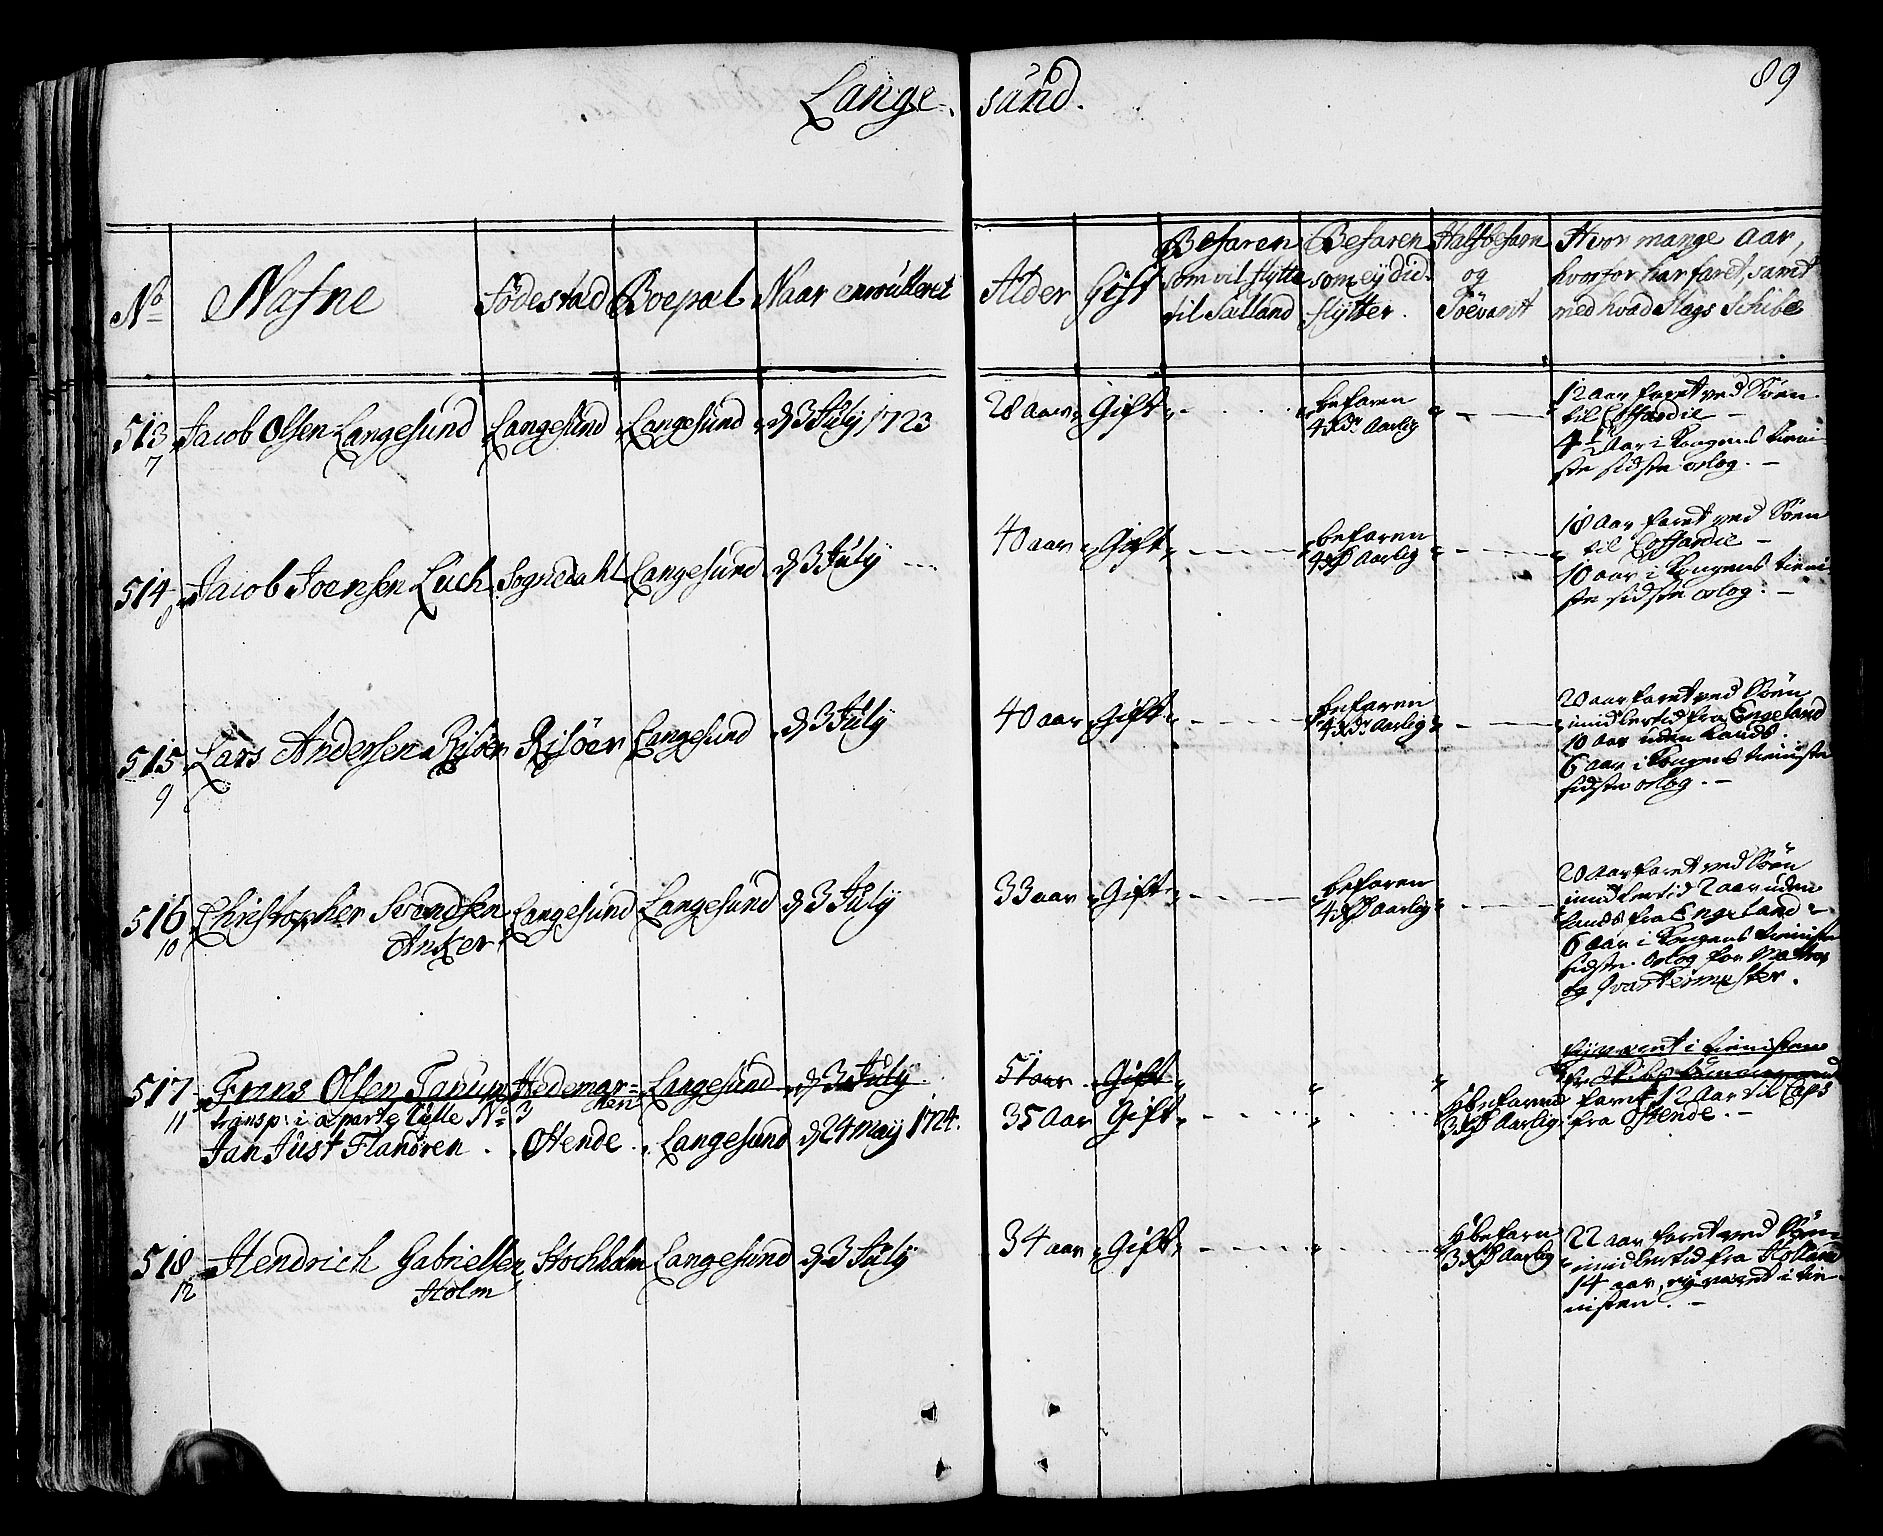 Lange- sund. 89
No Nafne Födestæd Boepæl Naar enroulleret Alder Gift
Befaren som vil flytte til Siælland
Befaren som ey did flytter.
Halfbefarn og Söevant
Hvor mange Aar, hvorfor har faret, samt med hvad Slags Schibe
513 Jacob Olsen Langesund Langesund Langesund d 3 July 1723 28 aar Gift befaren 4 Aarlig
7
12 aar faret ved Söen
til Coffardie
4½ Aar i Kongens tieni-
ste sidste orlog.
514 Jacob Joensen Luch Sognedahl Langesund d 3 July 40 aar Gift befaren 4 Aarlig
8
18 Aar faret ved Söen
til Coffardie
10 aar i Kongens tieni-
ste sidste orlog.
515 Lars Andersen Risöer Risöer Langesund d 3 July 40 aar Gift befaren 4 Aarlig
9
20 aar faret ved Söen
imidlertid fra Engeland
10 aar uden lands.
6 aar i Kongens tieniste
sidste orlog.
516 Christopher Svendsen Langesund Langesund d 3 July 33 aar Gift befaren 4 Aarlig
10 Anker
20 Aar faret ved Söen
imidlertid 2 aar uden
lands fra Engeland
6 aar i Kongens tieniste
sidste orlog for Matros
og Qvarteermester.
517 Frans Olsen Tanum Hedemar- Langesund d 3 July 51 aar Gift
cken
ey været i tienisten
11 transp: i aparte Rulle No 3
Jan Just Flanören Ostende Langesund d 24 Maij 1724. 35 Aar Gift
½befaren 3 Aarlig
faret 12 Aar til Caps
fra Ostende.
518 Hendrich Gabrielsen Stockholm Langesund d 3 July 34 aar Gift ½befaren 3 Aarlig
12 Holm
22 aar faret ved Söen
imidlertid fra Holland
14 aar, ey været i tie-
nisten.